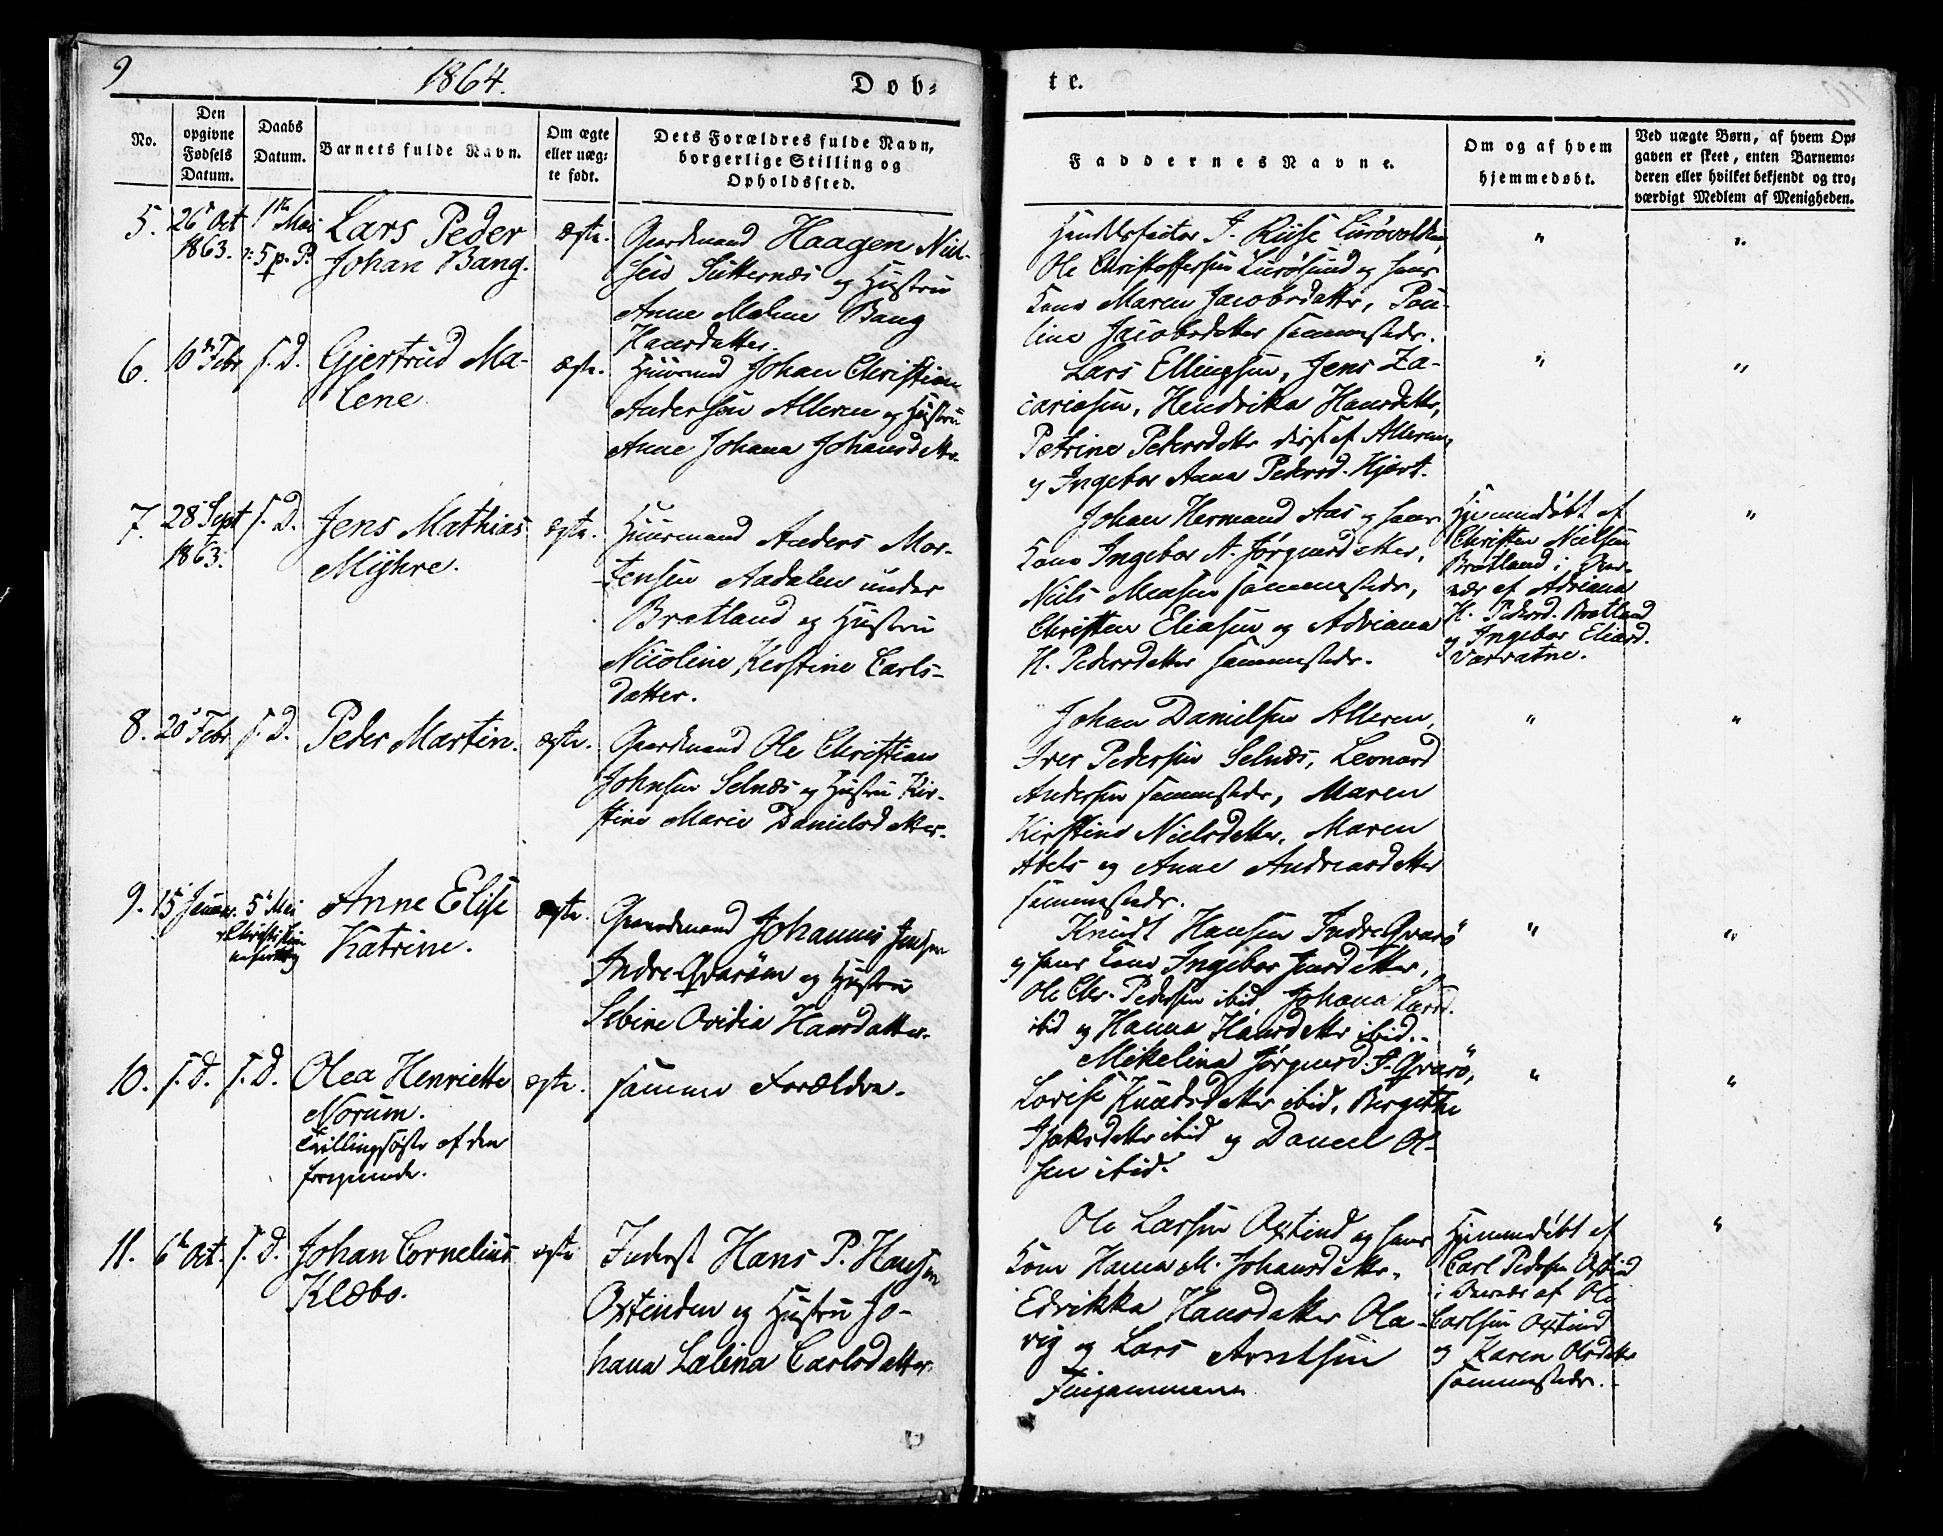 9
1864.
Dob-
te.
No.
Den opgivne Fødsels Datum.
Daabs Datum.
Barnets fulde Navn.
Om ægte eller uæg- te født.
Dets Forældres fulde Navn, borgerlige Stilling og Opholdssted.
Faddernes Navne.
Om og af hvem hjemmedøbt.
Ved uægte Børn, af hvem Op- gaven er skeet, enten Barnemo- deren eller hvilket bekjendt og tro- værdigt Medlem af Menigheden.
5.
26 Oct
1863.
1ste Mai
5 p. P.
Lars Peder
Johan Bang.
ægte.
Gaardmand Haagen Niel-
sen Sutternæs og Hustru
Anne Malene Bang
Hansdatter.
J. Riise Lurøvolden
Ole Christoffersen Lurøsund og hans
Kone Maren Jacobsdatter, Pau-
line Jacobsdatter sammesteds.
"
"
6.
10de Febr
s. D.
Gjertrud Ma-
lene
ægte.
Huusmand Johan Christian
Andersen Alleren og Hustru
Anne Johana Johansdatter.
Lars Ellingsen, Jens Za-
cariasen, Hendrikka Hansdatter,
Petrine Pedersdatter Alleren,
og Ingebor Anna Pedersd. Hjort.
"
"
7.
28 Sept
1863.
s. D.
Jens Mathias
Myhre.
ægte.
Huusmand Anders Mor-
tensen Aadalen under
Bratland og Hustru
Nicoline Kerstine Carls-
datter.
Johan Hermand Aas og hans
Kone Ingebor A. Jørgensdatter,
Niels Monsen sammesteds,
Christen Eliasen og Adriana
H. Pedersdatter sammesteds.
Hjemmedøbt af
Christen Nielsen
Bratland i Over-
vær af Adriana
H. Pedersd. Bratland
og Ingebor Eliasd.
Værvatne.
"
8.
20 Febr
s. D.
Peder Martin.
ægte.
Gaardmand Ole Christian
Johnsen Selnæs og Hustru Kir-
stine Marie Danielsdatter.
Johan Danielsen Alleren,
Iver Pedersen Selnæs, Leonard
Andersen sammesteds, Maren
Kirstine Nielsdatter, Maren
Abels og Anne Andreasdatter
sammesteds.
"
"
9.
15 Januar.
5 Mai
Christi Him
melfartsdag
Anne Elise
Katrine.
ægte.
Gaardmand Johannes Jensen
Indre Qvarøen og Hustru
Sebine Ovidia Hansdatter.
Knudt Hansen Indre Qvarø
og hans Kone Ingebor Jensdatter,
Ole Chr. Pedersen ibid Johana Larsd.
ibid og Hanna Hansdatter ibid.
"
"
10.
s. D.
s. D.
Olea Henriette
Norum.
Tvillingsøster af den
foregaaende.
ægte.
samme Forældre.
Mikelina Jørgensd. I. Qvarø,
Lovise Knudsdatter ibid, Bergitte
Isaksdatter ibid og Daniel Ol-
sen ibid.
"
"
11.
6te Oct.
s. D.
Johan Cornelius
Klæbo.
ægte
Inderst Hans P. Hansen
Oxtinden og Hustru Jo-
hana Lalina Carlsdatter.
Ole Larsen Oxtind og hans
Kone Hanna M. Johansdatter,
Edvikka Hansdatter Ola-
vig og Lars Arntsen
Fingammen
Hjemmedøbt af
Carl Pedersen Oxtind
i Overvær af Ole
Carlsen Oxtind
og Karen Olsdatter
sammesteds.
"